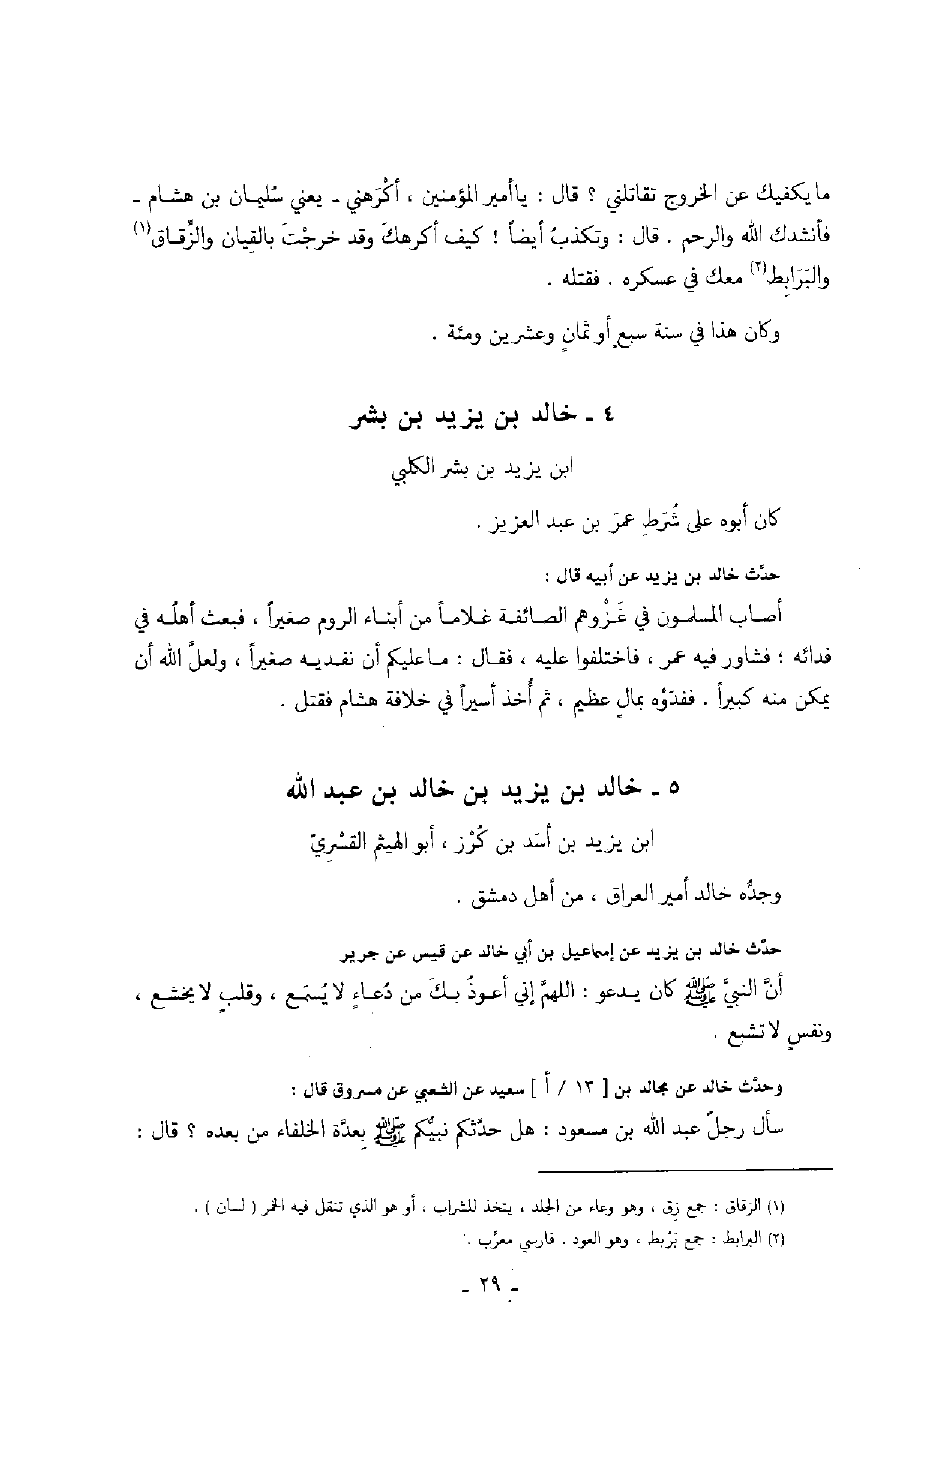 ما يكفيك عن الخروج تقاتلني ؟ قال : يا أمير المؤمنين ، أكْرَهني ـ يعني سُليمان بن هشام ـ
فأنشدك الله والرحم . قال : وتكذبُ أيضاً ! كيف أكرهكَ وقد خرجْتَ بالقيان والزِّقاق(١)
والبَرَابِط(٢) معك في عسكره . فقتله .
وكان هذا في سنة سبعٍ أو ثمانٍ وعشرين ومئة .
٤ ـ خالد بن يزيد بن بشر
ابن يزيد بن بشر الكلبي
كان أبوه على شُرَطِ عمرَ بن عبد العزيز .
حدَّث خالد بن يزيد عن أبيه قال :
أصاب المسلمون في غَزْوِهم الصائفة غلاماً من أبناء الروم صغيراً ، فبعث أهلُه في
فدائه ؛ فشاور فيه عمر ، فاختلفوا عليه ، فقال : ما عليكم أن نفديه صغيراً ، ولعلَّ الله أن
يمكن منه كبيراً . ففدَوْه بمالٍ عظيم ، ثم أُخذ أسيراً في خلافة هشام فقتل .
٥ ـ خالد بن يزيد بن خالد بن عبد الله
ابن يزيد بن أسَد بن كُرْز ، أبو الهيثم القَسْرِيّ
وجدُّه خالد أمير العراق ، من أهل دمشق .
حدَّث خالد بن يزيد عن إسماعيل بن أبي خالد عن قيس عن جرير
أنَّ النبيَّ ﷺ كان يدعو : اللهمَّ إني أعوذُ بكَ من دُعاءٍ لا يُسْمَع ، وقلبٍ لا يخشع ،
ونفسٍ لا تشبع .
وحدَّث خالد عن مجالد بن [ ١٣ / أ ] سعيد عن الشعبي عن مسروق قال :
سأل رجلٌ عبد الله بن مسعود : هل حدَّثكم نبيُّكم ﷺ بعدَّة الخلفاء من بعده ؟ قال :
(١) الزقاق : جمع زِق ، وهو وعاء من الجلد ، يتخذ للشراب ، أو هو الذي تنقل فيه الخمر ( لسان ) .
(٢) البرابط : جمع بَرْبط ، وهو العود . فارسي معرَّب .
ـ ٢٩ ـ